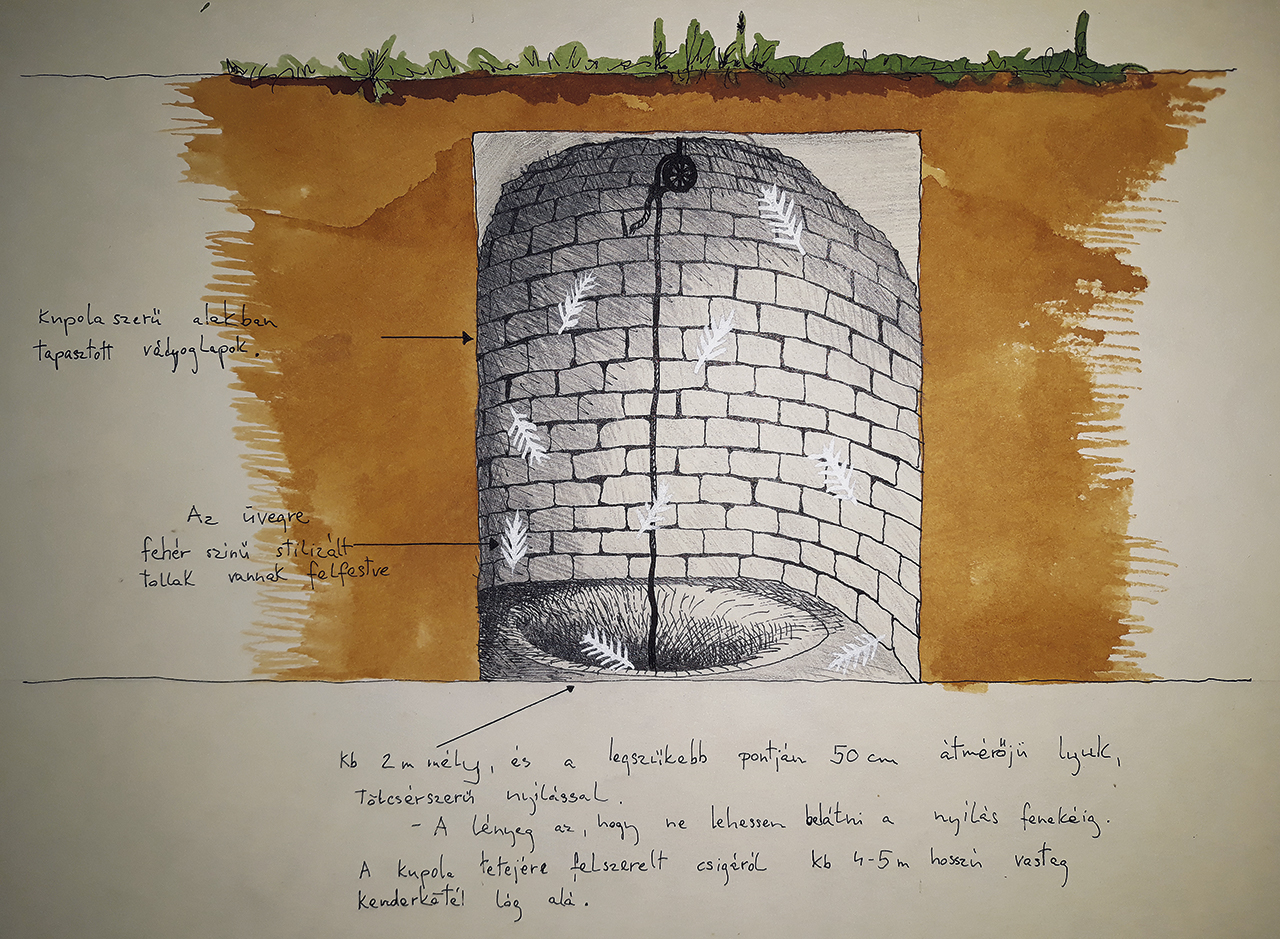 Kupola szerű alakban
tapasztott vályoglapok.
Az üvegre
fehér színű stilizált
tollak vannak felfestve
Kb 2 m mély, és a legszűkebb pontján 50 cm átmérőjű lyuk,
Tölcsérszerű nyílással.
- A lényeg az, hogy ne lehessen belátni a nyílás fenekéig.
A kupola tetejére felszerelt csigáról kb 4-5 m hosszú vastag
kenderkötél lóg alá.